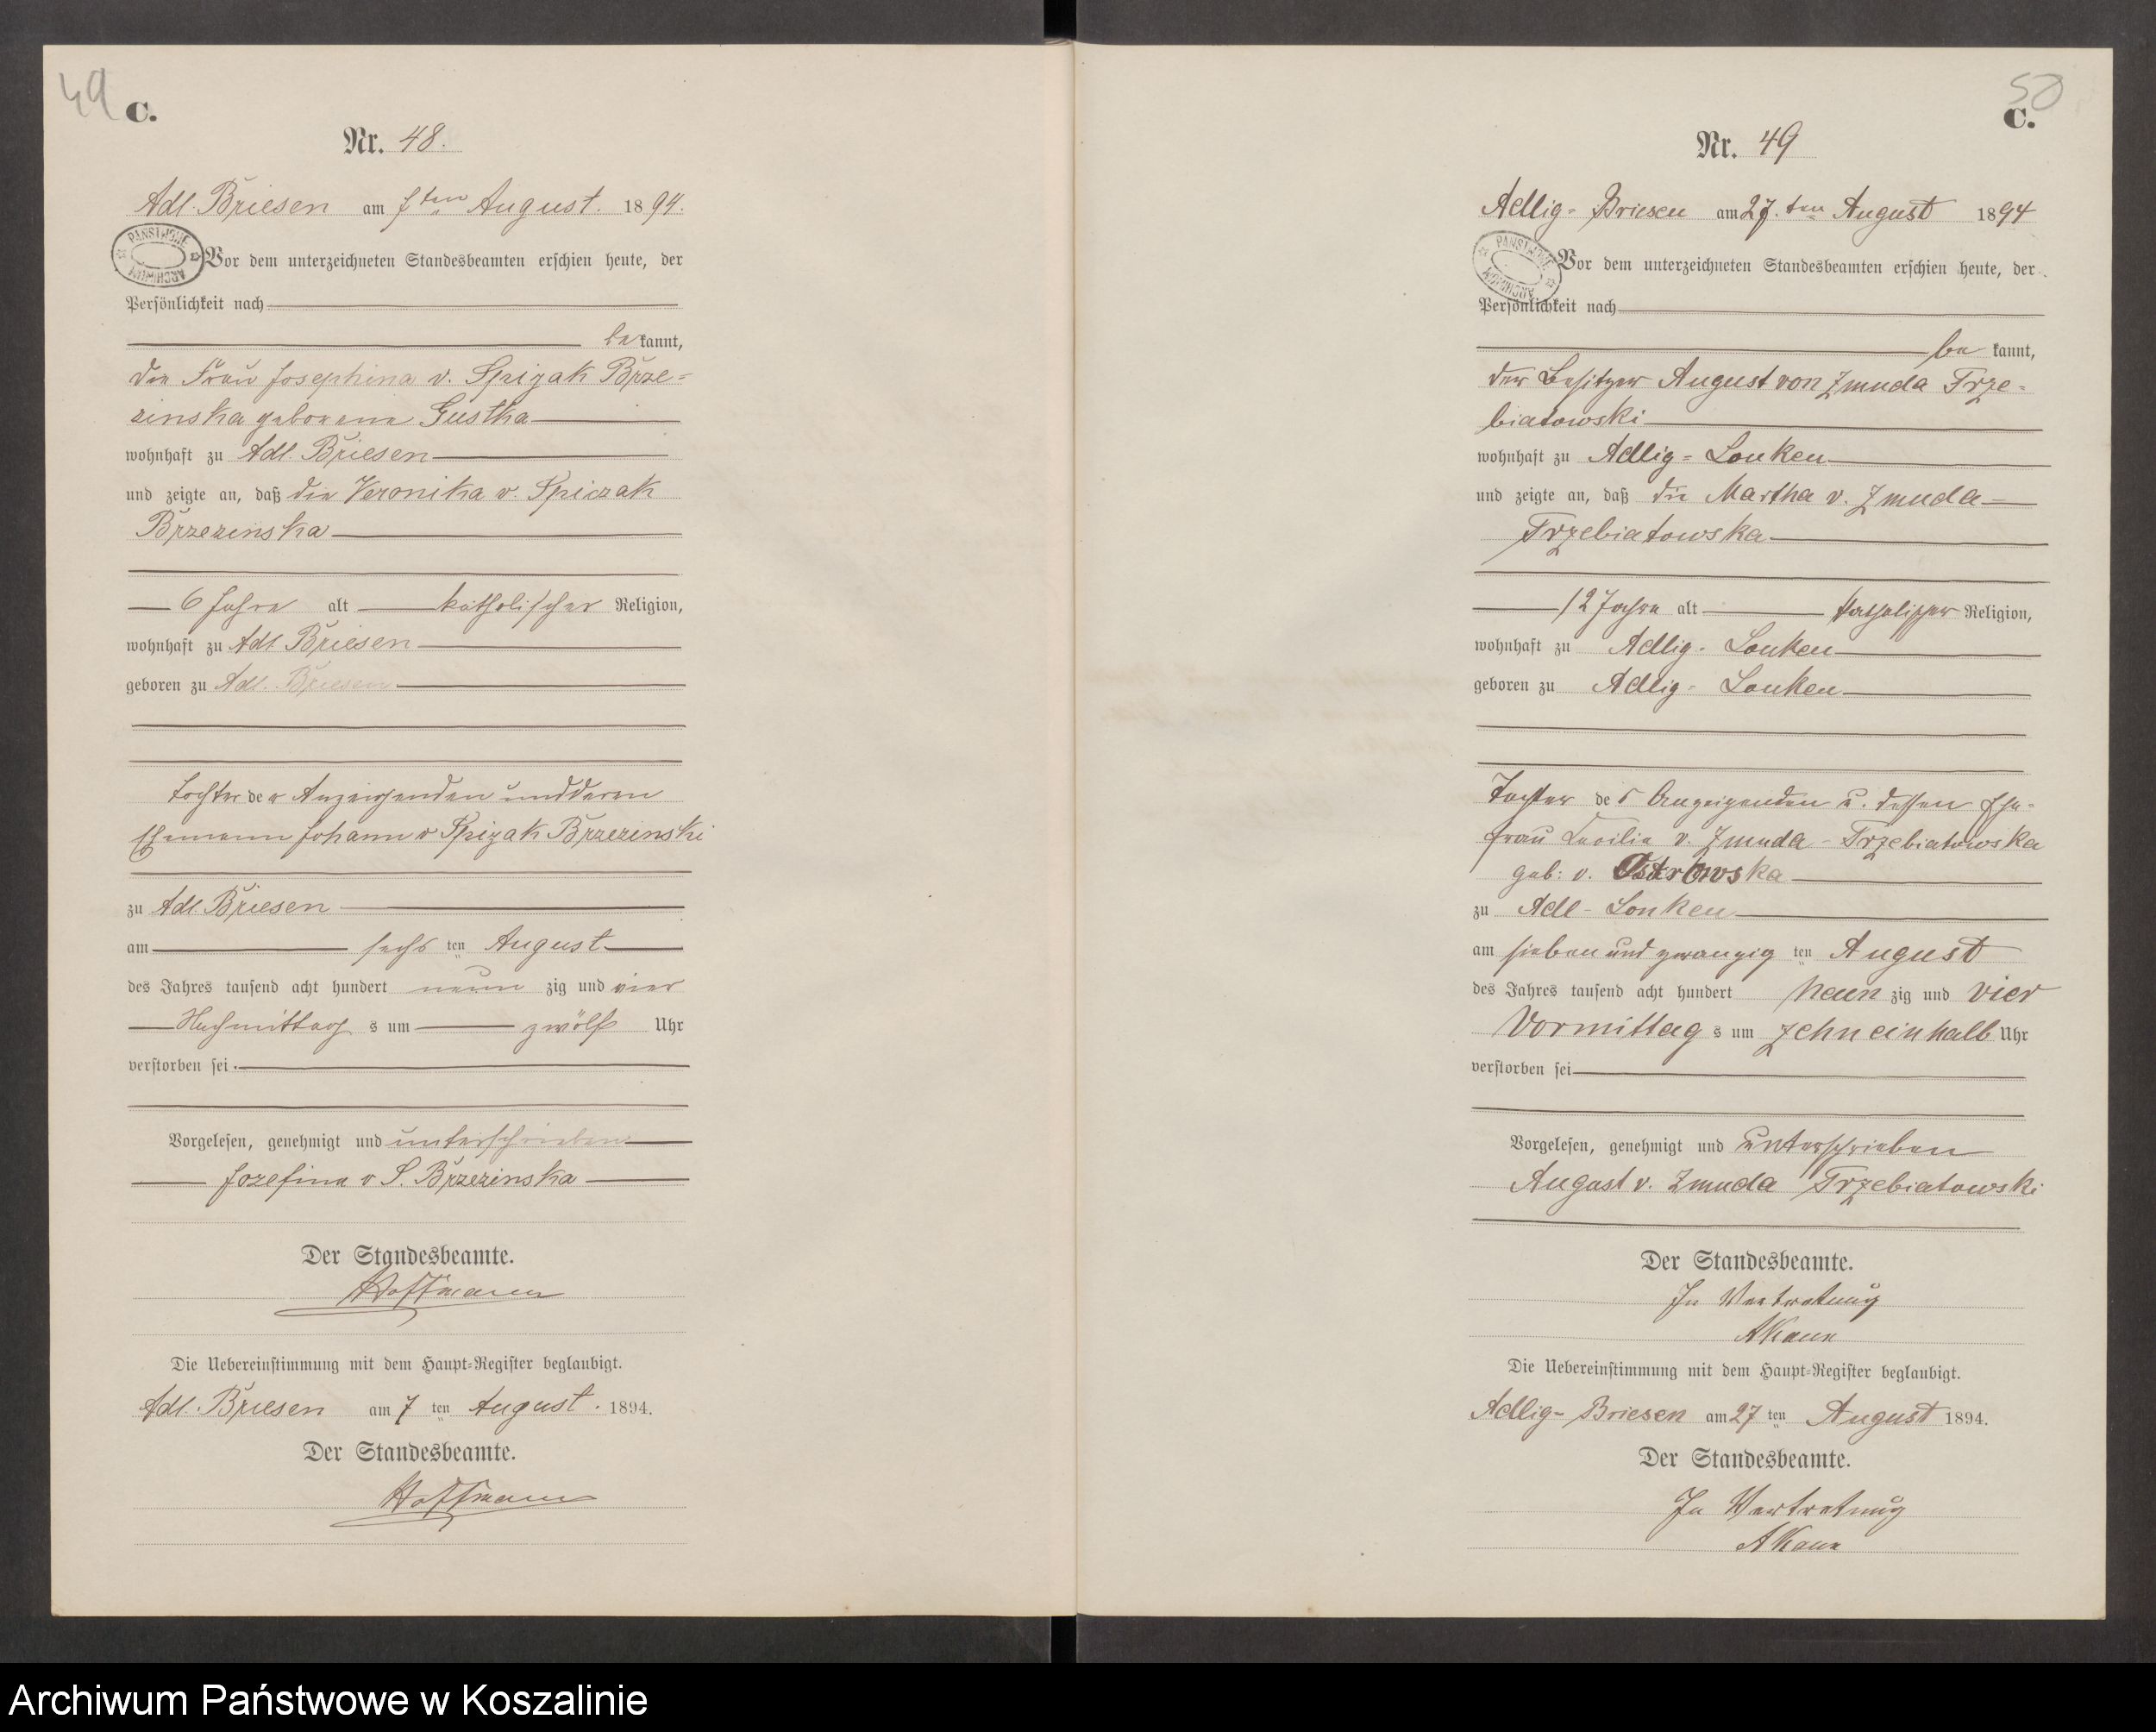 49
C.
Nr. 48.
Adl. Briesen am 7ten August. 1894.
PAŃSTWOWE ARCHIWUM
Vor dem unterzeichneten Standesbeamten erschien heute, der
Persönlichkeit nach
bekannt,
die Frau Josephina v. Spizak Brze=
zinska geborene Gustka
wohnhaft zu Adl. Briesen
und zeigte an, daß die Veronika v. Spiczak
Brzezinska
6 Jahre alt katholischer Religion,
wohnhaft zu Adl Briesen
geboren zu Adl. Briesen
Tochter der Anzeigenden und deren
Ehemann Johann v Spizak Brzezinski
zu Adl. Briesen
am sechs ten August
des Jahres tausend acht hundert neun zig und vier
Nachmittag s um zwölf Uhr
verstorben sei.
Vorgelesen, genehmigt und unterschrieben
Jozefina v S. Brzezinska
Der Standesbeamte.
Hoffmann
Die Uebereinstimmung mit dem Haupt=Register beglaubigt.
Adl. Briesen am 7 ten August. 1894.
Der Standesbeamte.
Hoffmann
50
C.
Nr. 49
Adlig= Briesen am 27. ten August 1894
PAŃSTWOWE ARCHIWUM
Vor dem unterzeichneten Standesbeamten erschien heute, der
Persönlichkeit nach
be kannt,
der Besitzer August von Zmuda Trze=
biatowski
wohnhaft zu Adlig= Lonken
und zeigte an, daß die Martha v. Zmuda=
Trzebiatowska
12 Jahre alt katholischer Religion,
wohnhaft zu Adlig= Lonken
geboren zu Adlig= Lonken
Tochter des Anzeigenden u. dessen Ehe=
frau Cecilia v. Zmuda-Trzebiatowska
geb: v. Ostrowska
zu Adl-Lonken
am sieben und zwanzig ten August
des Jahres tausend acht hundert neun zig und vier
Vormittag s um zehn einhalb Uhr
verstorben sei
Vorgelesen, genehmigt und unterschrieben
August v. Zmuda Trzebiatowski
Der Standesbeamte.
In Vertretung
Die Uebereinstimmung mit dem Haupt=Register beglaubigt.
Adlig= Briesen am 27 ten August 1894.
Der Standesbeamte.
In Vertretung
Archiwum Państwowe w Koszalinie